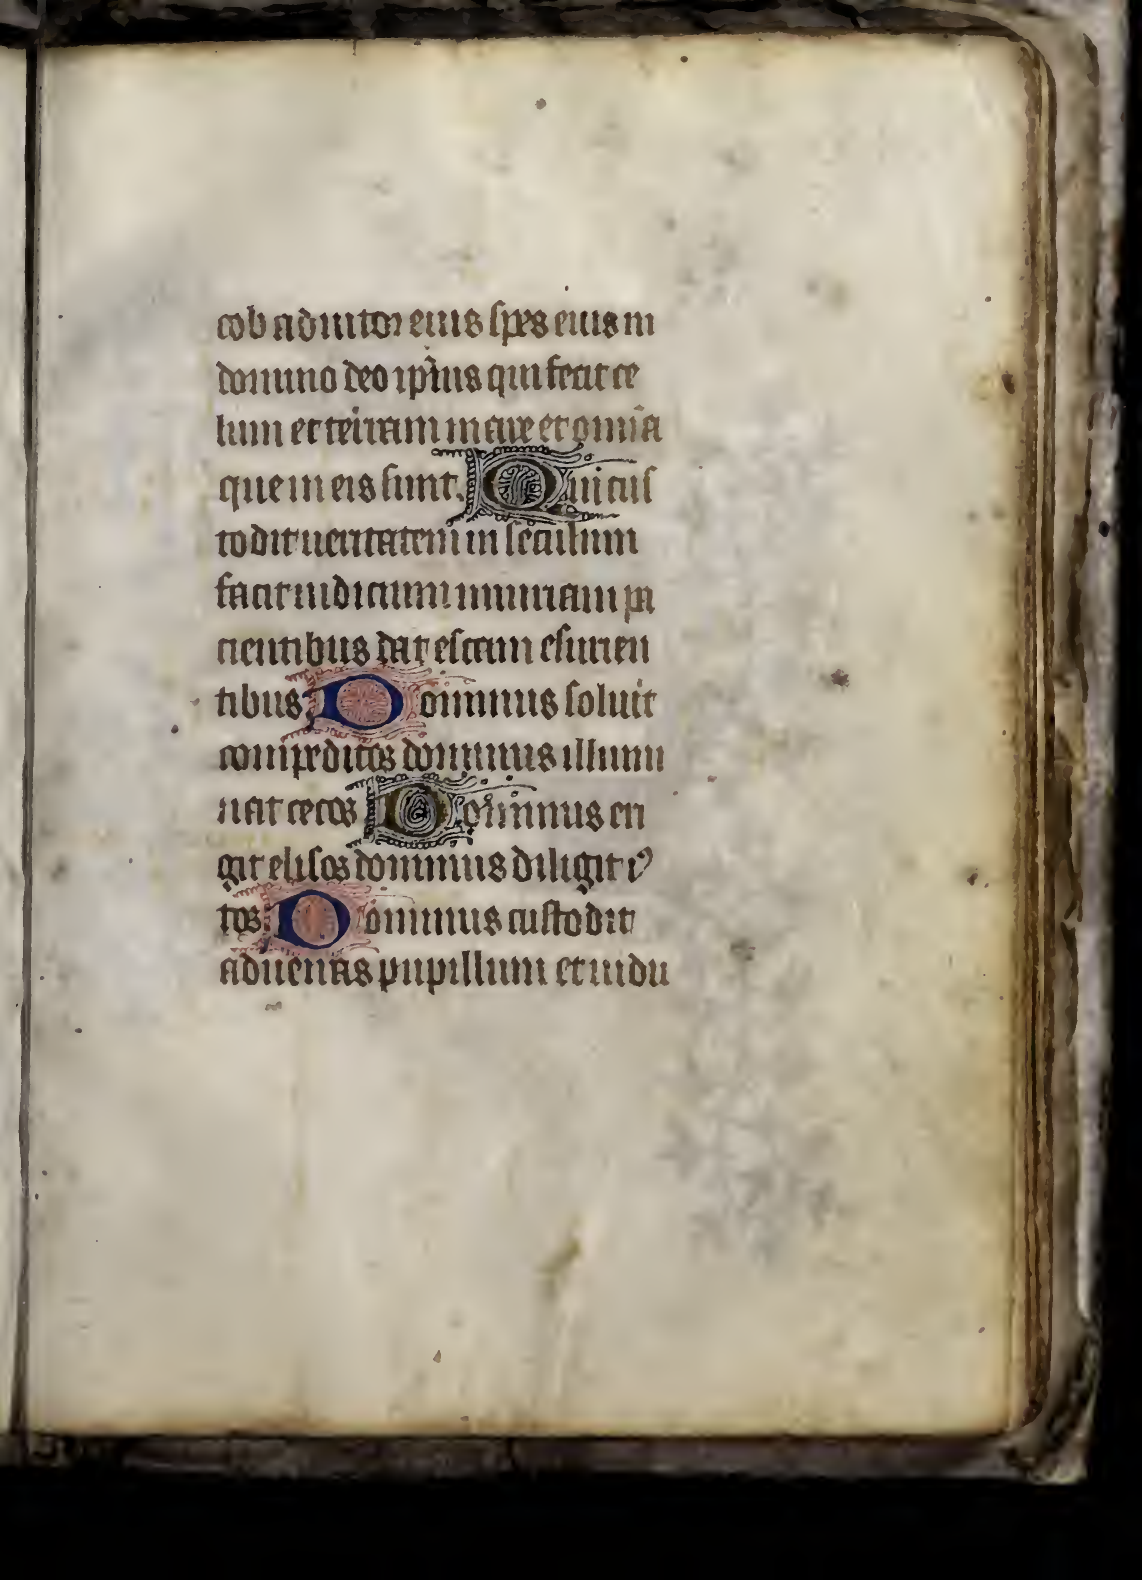 cob adiutor eius spes eius in
domino deo ip̄ius qui fecit ce
lum et terram mare et om̄ia
que in eis sunt. Qui cus
todit ueritatem in seculum
facit iudicium iniuriam pa
cientibus dat escam esurien
tibus Dominus soluit
compeditos dominus illumi
nat cecos Dominus eri
git elisos dominus diligit i
tos. Dominus custodit
aduenas pupillum et uidu